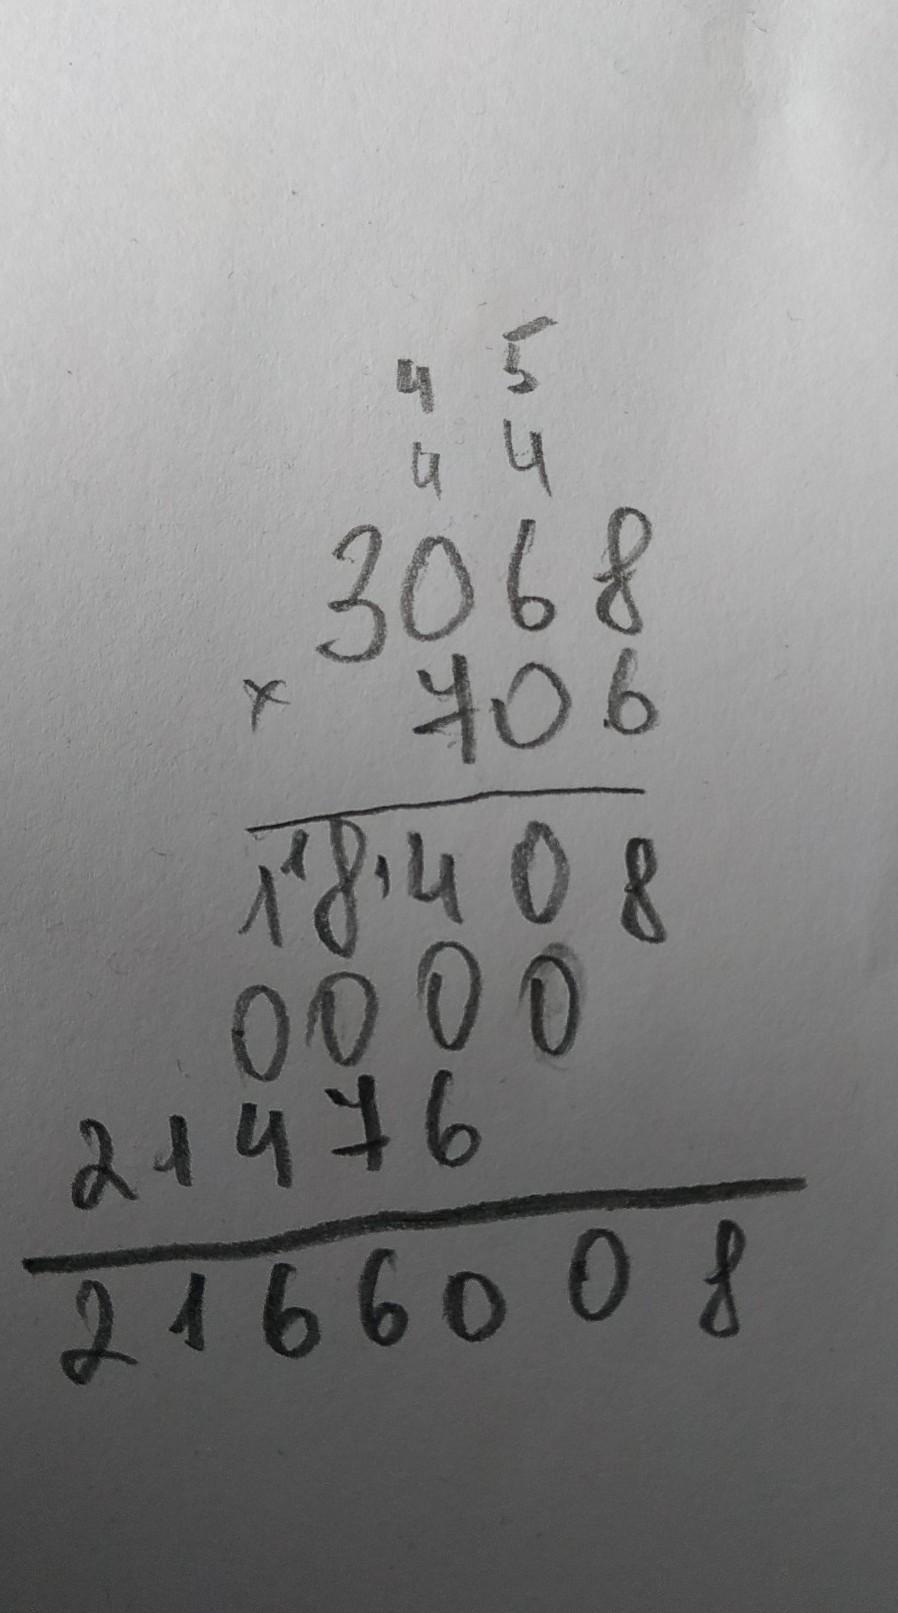 4 5
4 4
3068
x 706
1 1 8 1 4 0 8
0 0 0 0
2 1 4 7 6
2 1 6 6 0 0 8